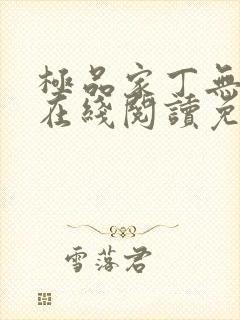 極品家丁無
在綫閱讀免
雪落君